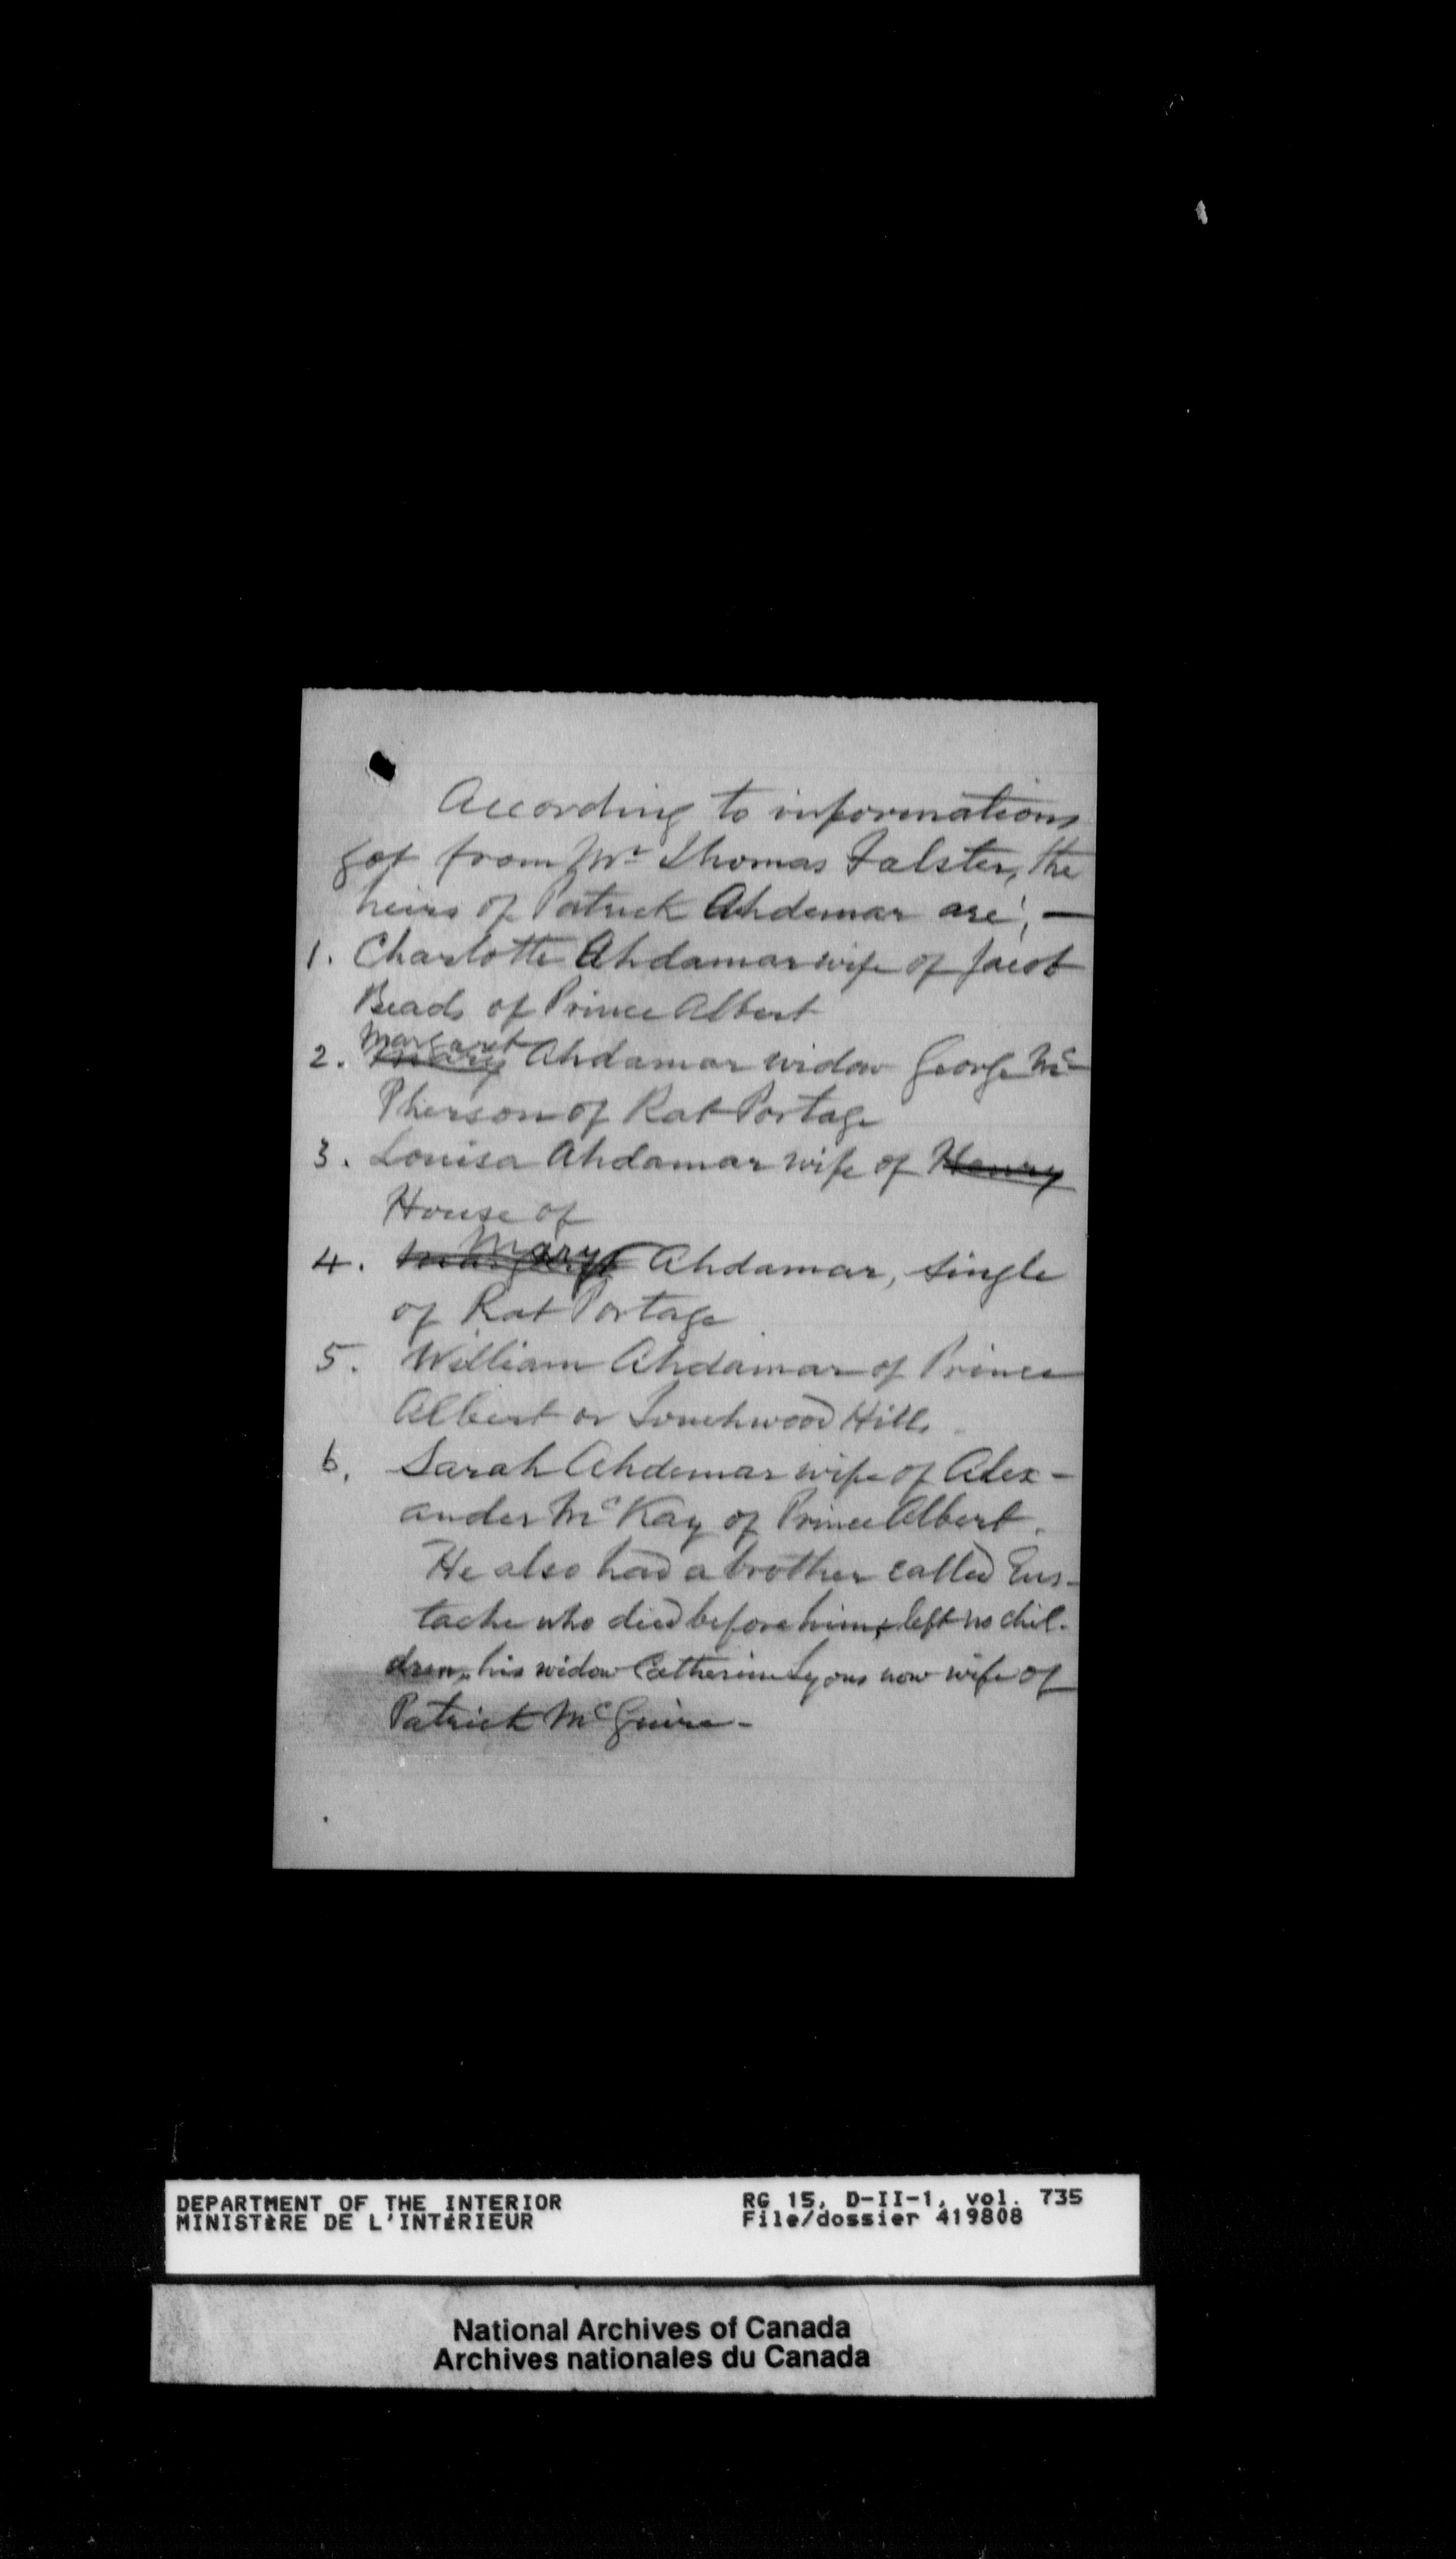 According to informations
got from Mr Thomas Falster, the
heirs of Patrick Ahdemar are; —
1. Charlotte Ahdamar wife of Jacob
Beads of Prince Albert
Margaret
2. Mary Ahdamar widow George Mc
Pherson of Rat Portage
3. Louisa Ahdamar wife of Henry
House of
Mary
4. Ahdamar, single
of Rat Portage
5. William Ahdamar of Prince
Albert or Touchwood Hills
6. Sarah Ahdemar wife of Alex-
ander McKay of Prince Albert.
He also had a brother called Eus-
tache who died before him, left no chil-
dren, his widow Catherine Lyons now wife of
Patrick McGuire -
DEPARTMENT OF THE INTERIOR
MINISTÈRE DE L'INTÉRIEUR
RG 15, D-II-1, vol. 735
File/dossier 419808
National Archives of Canada
Archives nationales du Canada